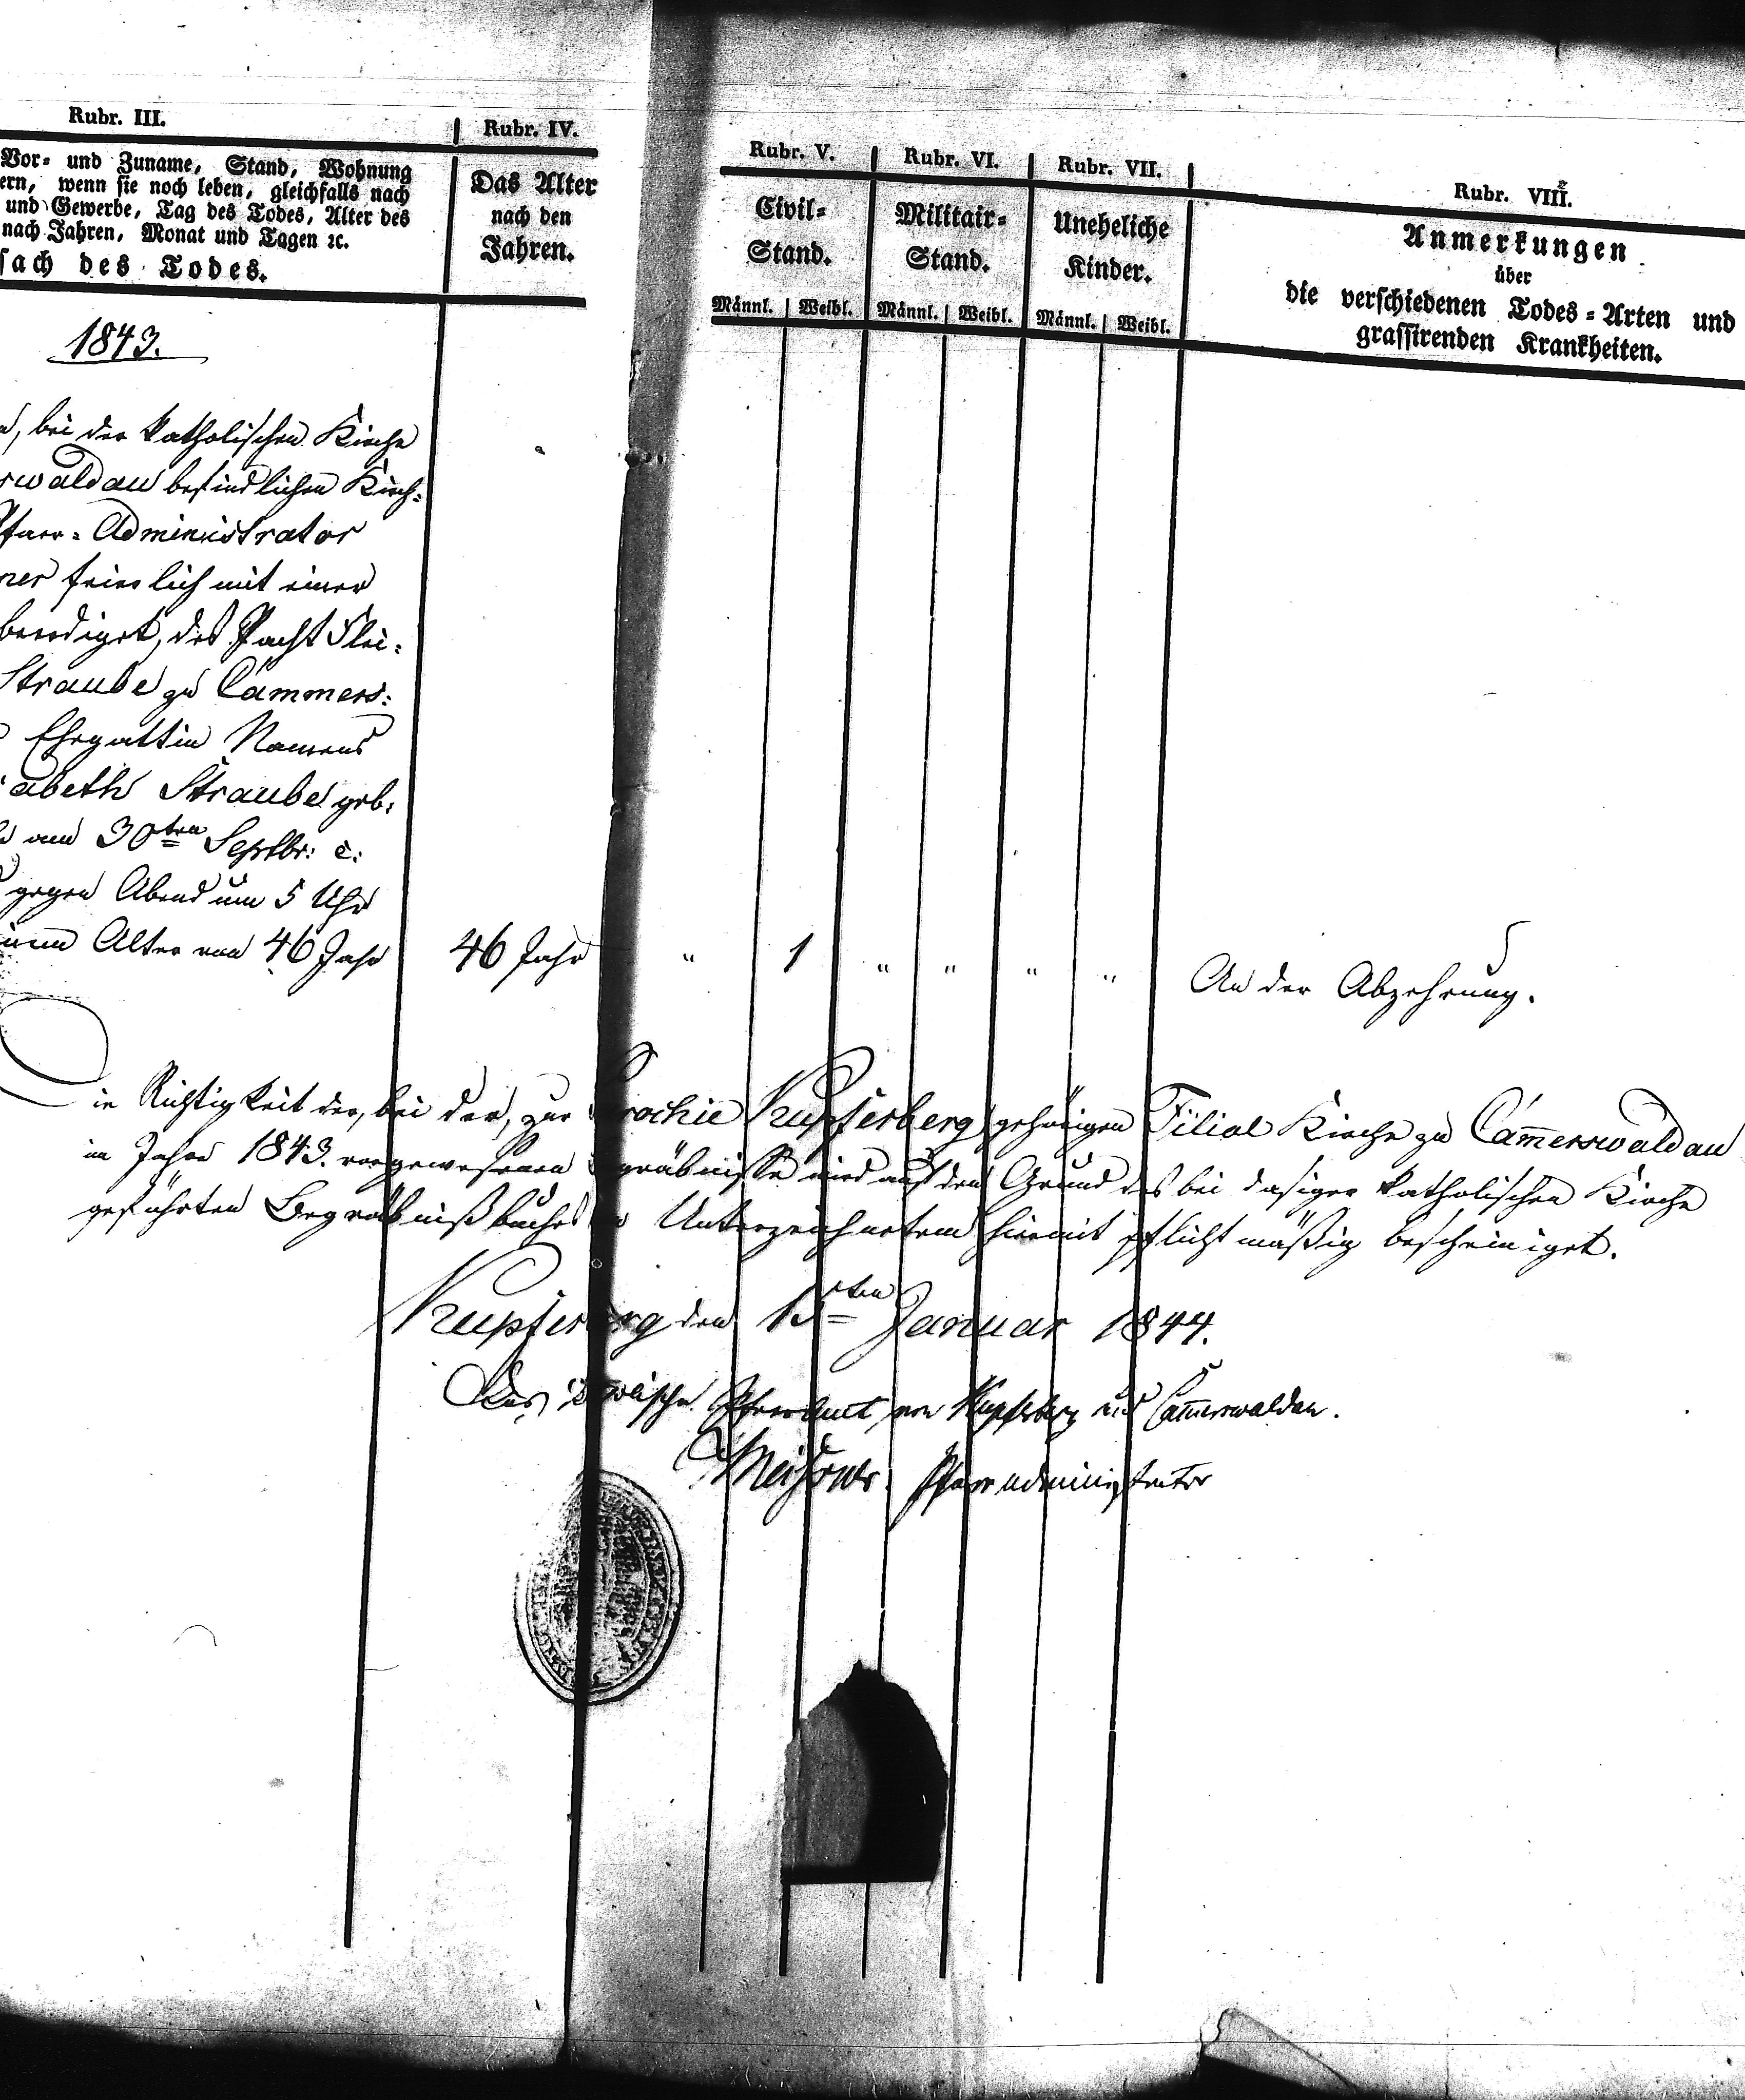 Rubr. III.
Vor= und Zuname, Stand, Wohnung
ern, wenn sie noch leben, gleichfalls nach
und Gewerbe, Tag des Todes, Alter des
nach Jahren, Monat und Tagen ꝛc.
sach des Todes.
Rubr. IV.
Das Alter
nach den
Jahren.
Rubr. V.
Civil=
Stand.
Männl. Weibl.
Rubr. VI.
Militair=
Stand.
Männl. Weibl.
Rubr. VII.
Uneheliche
Kinder.
Männl. Weibl.
Rubr. VIII.
Anmerkungen
über
die verschiedenen Todes=Arten und
grassirenden Krankheiten.
1843.
, bei der katholischen Kirche
rswaldau befindlichen Kirch=
Pfarr=Administrator
ner feierlich mit einer
beerdiget, des Pacht Flei=
Straube zu Cammers=
Ehegattin Namens
abeth Straube geb.
am 30ten Septbr: c:
gegen Abend um 5 Uhr
Alter von 46 Jahr
46 Jahr " 1 " " " " An der Abzehrung.
Die Richtigkeit der, bei der, zur rochie Kupferberg gehörigen Filial Kirche zu Cam̅erswaldau
im Jahre 1843. vorgewesenen gräbnisse wird auf den Grund des bei dasiger katholischen Kirche
geführten Begräbnißbuches Unterzeichnetem hiermit pflichtmäßig bescheiniget.
Kupfer rg den Januar 1844.
Das Pfarramt von Kupferberg und Cam̅erswaldau.
Pfarradministrator